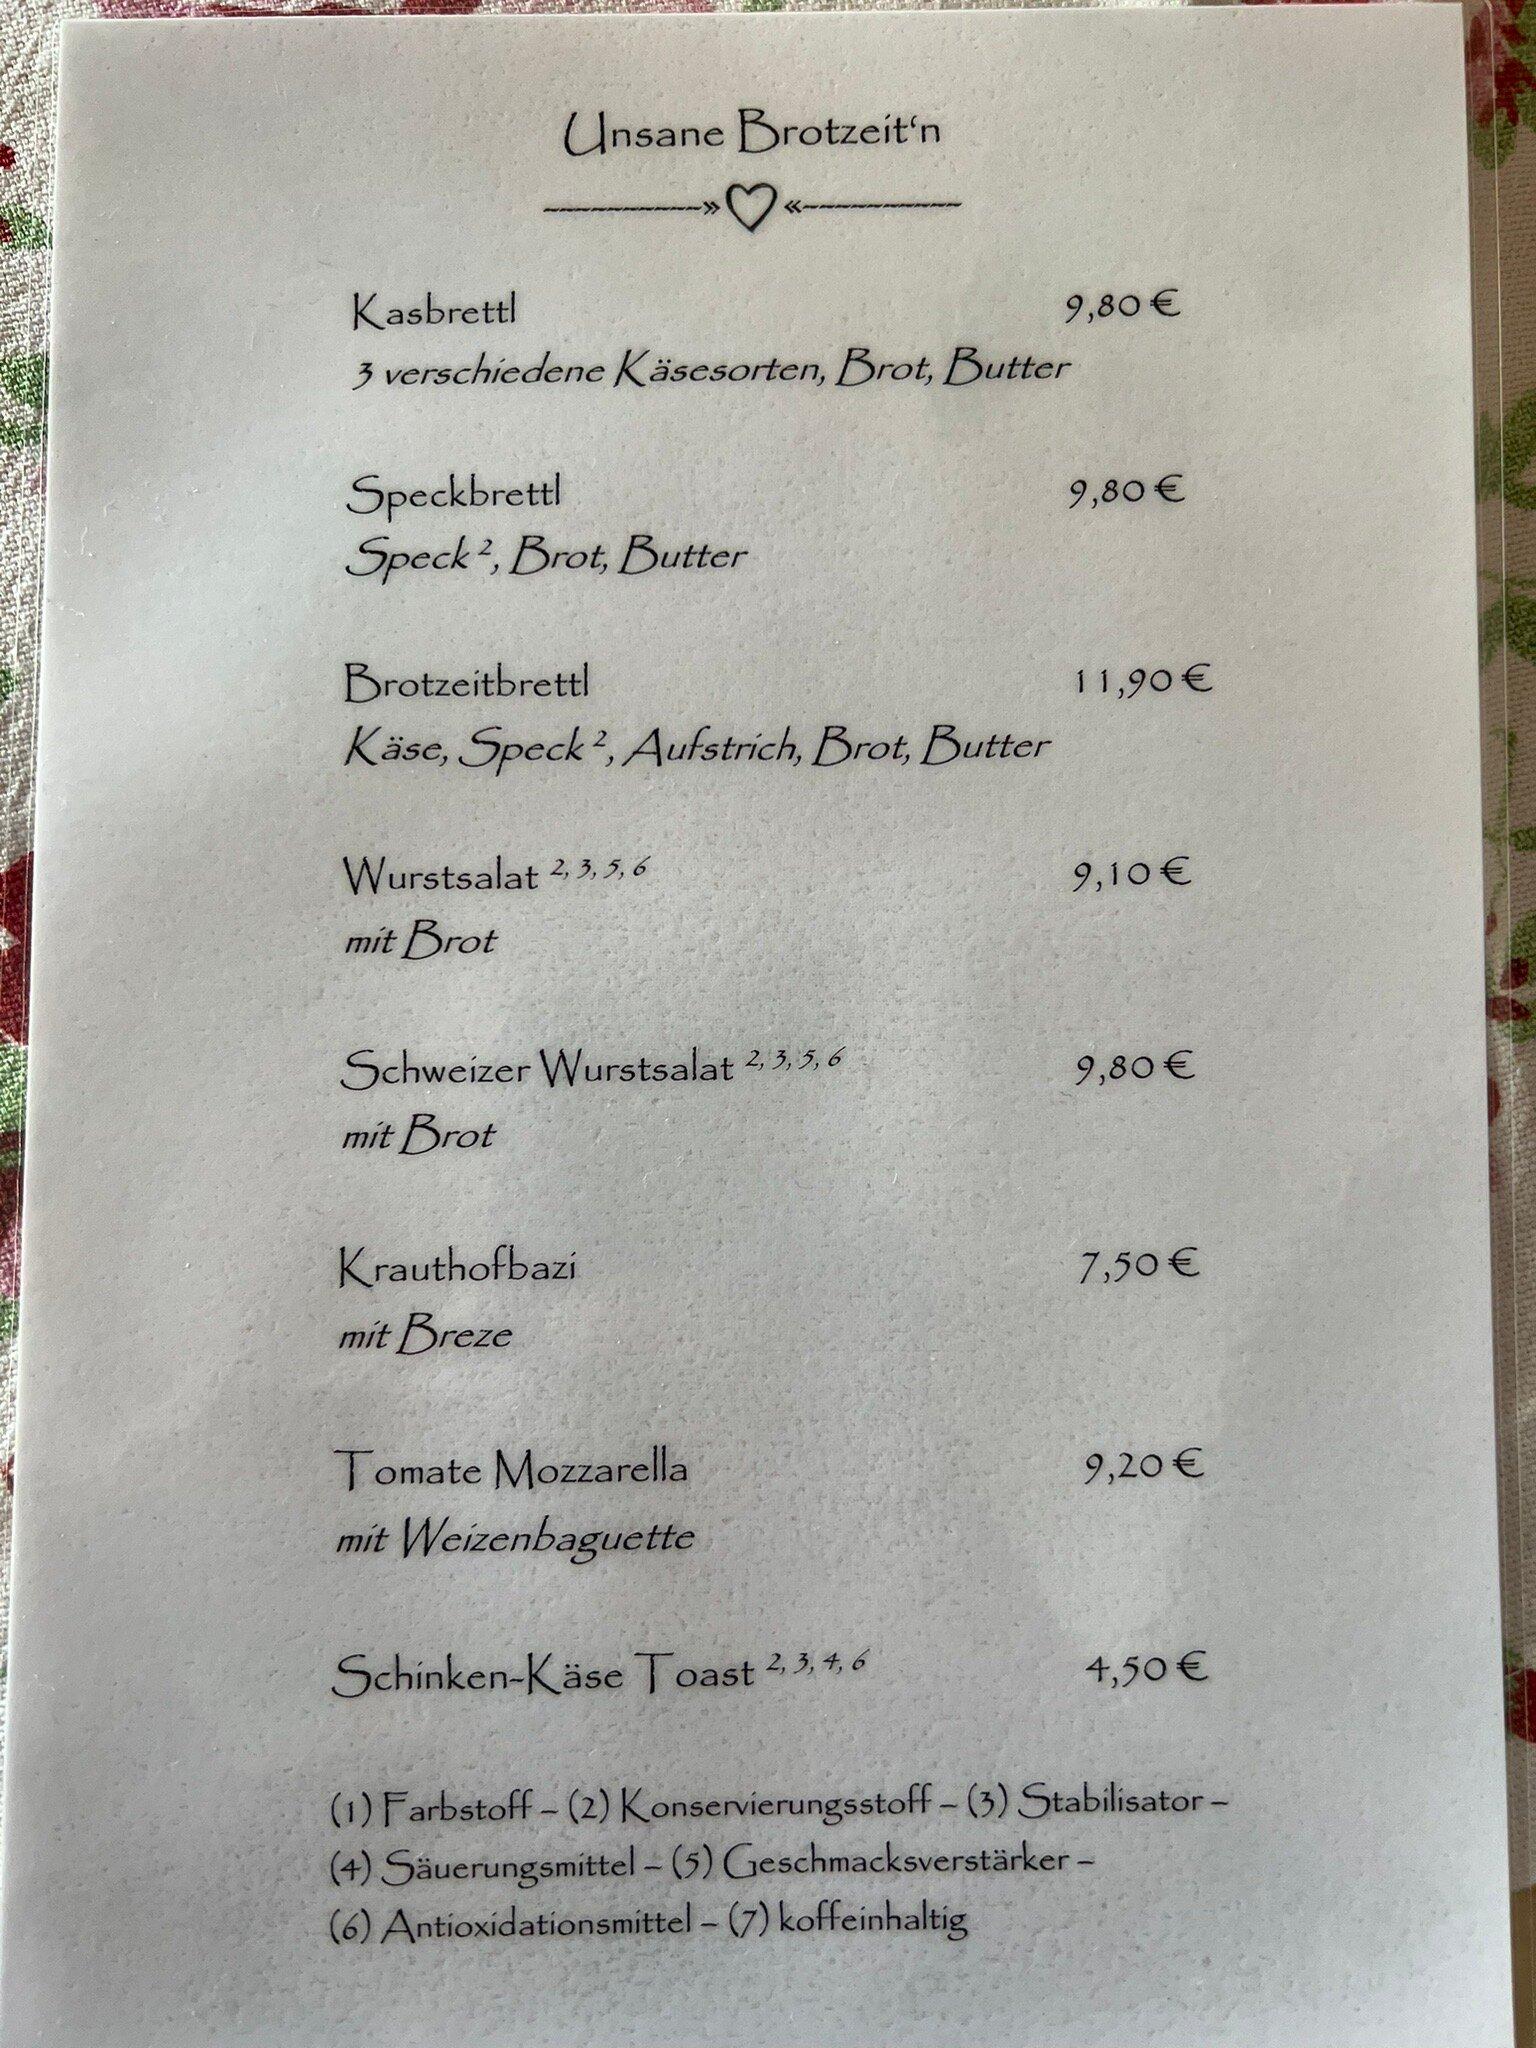 Unsane Brotzeit‘n
Kasbrettl 9,80 €
3 verschiedene Käsesorten, Brot, Butter
Speckbrettl 9,80 €
Speck ², Brot, Butter
Brotzeitbrettl 11,90 €
Käse, Speck ², Aufstrich, Brot, Butter
Wurstsalat 2, 3, 5, 6 9,10 €
mit Brot
Schweizer Wurstsalat 2, 3, 5, 6 9,80 €
mit Brot
Krauthofbazi 7,50 €
mit Breze
Tomate Mozzarella 9,20 €
mit Weizenbaguette
Schinken-Käse Toast 2, 3, 4, 6 4,50 €
(1) Farbstoff – (2) Konservierungsstoff – (3) Stabilisator –
(4) Säuerungsmittel – (5) Geschmacksverstärker –
(6) Antioxidationsmittel – (7) koffeinhaltig